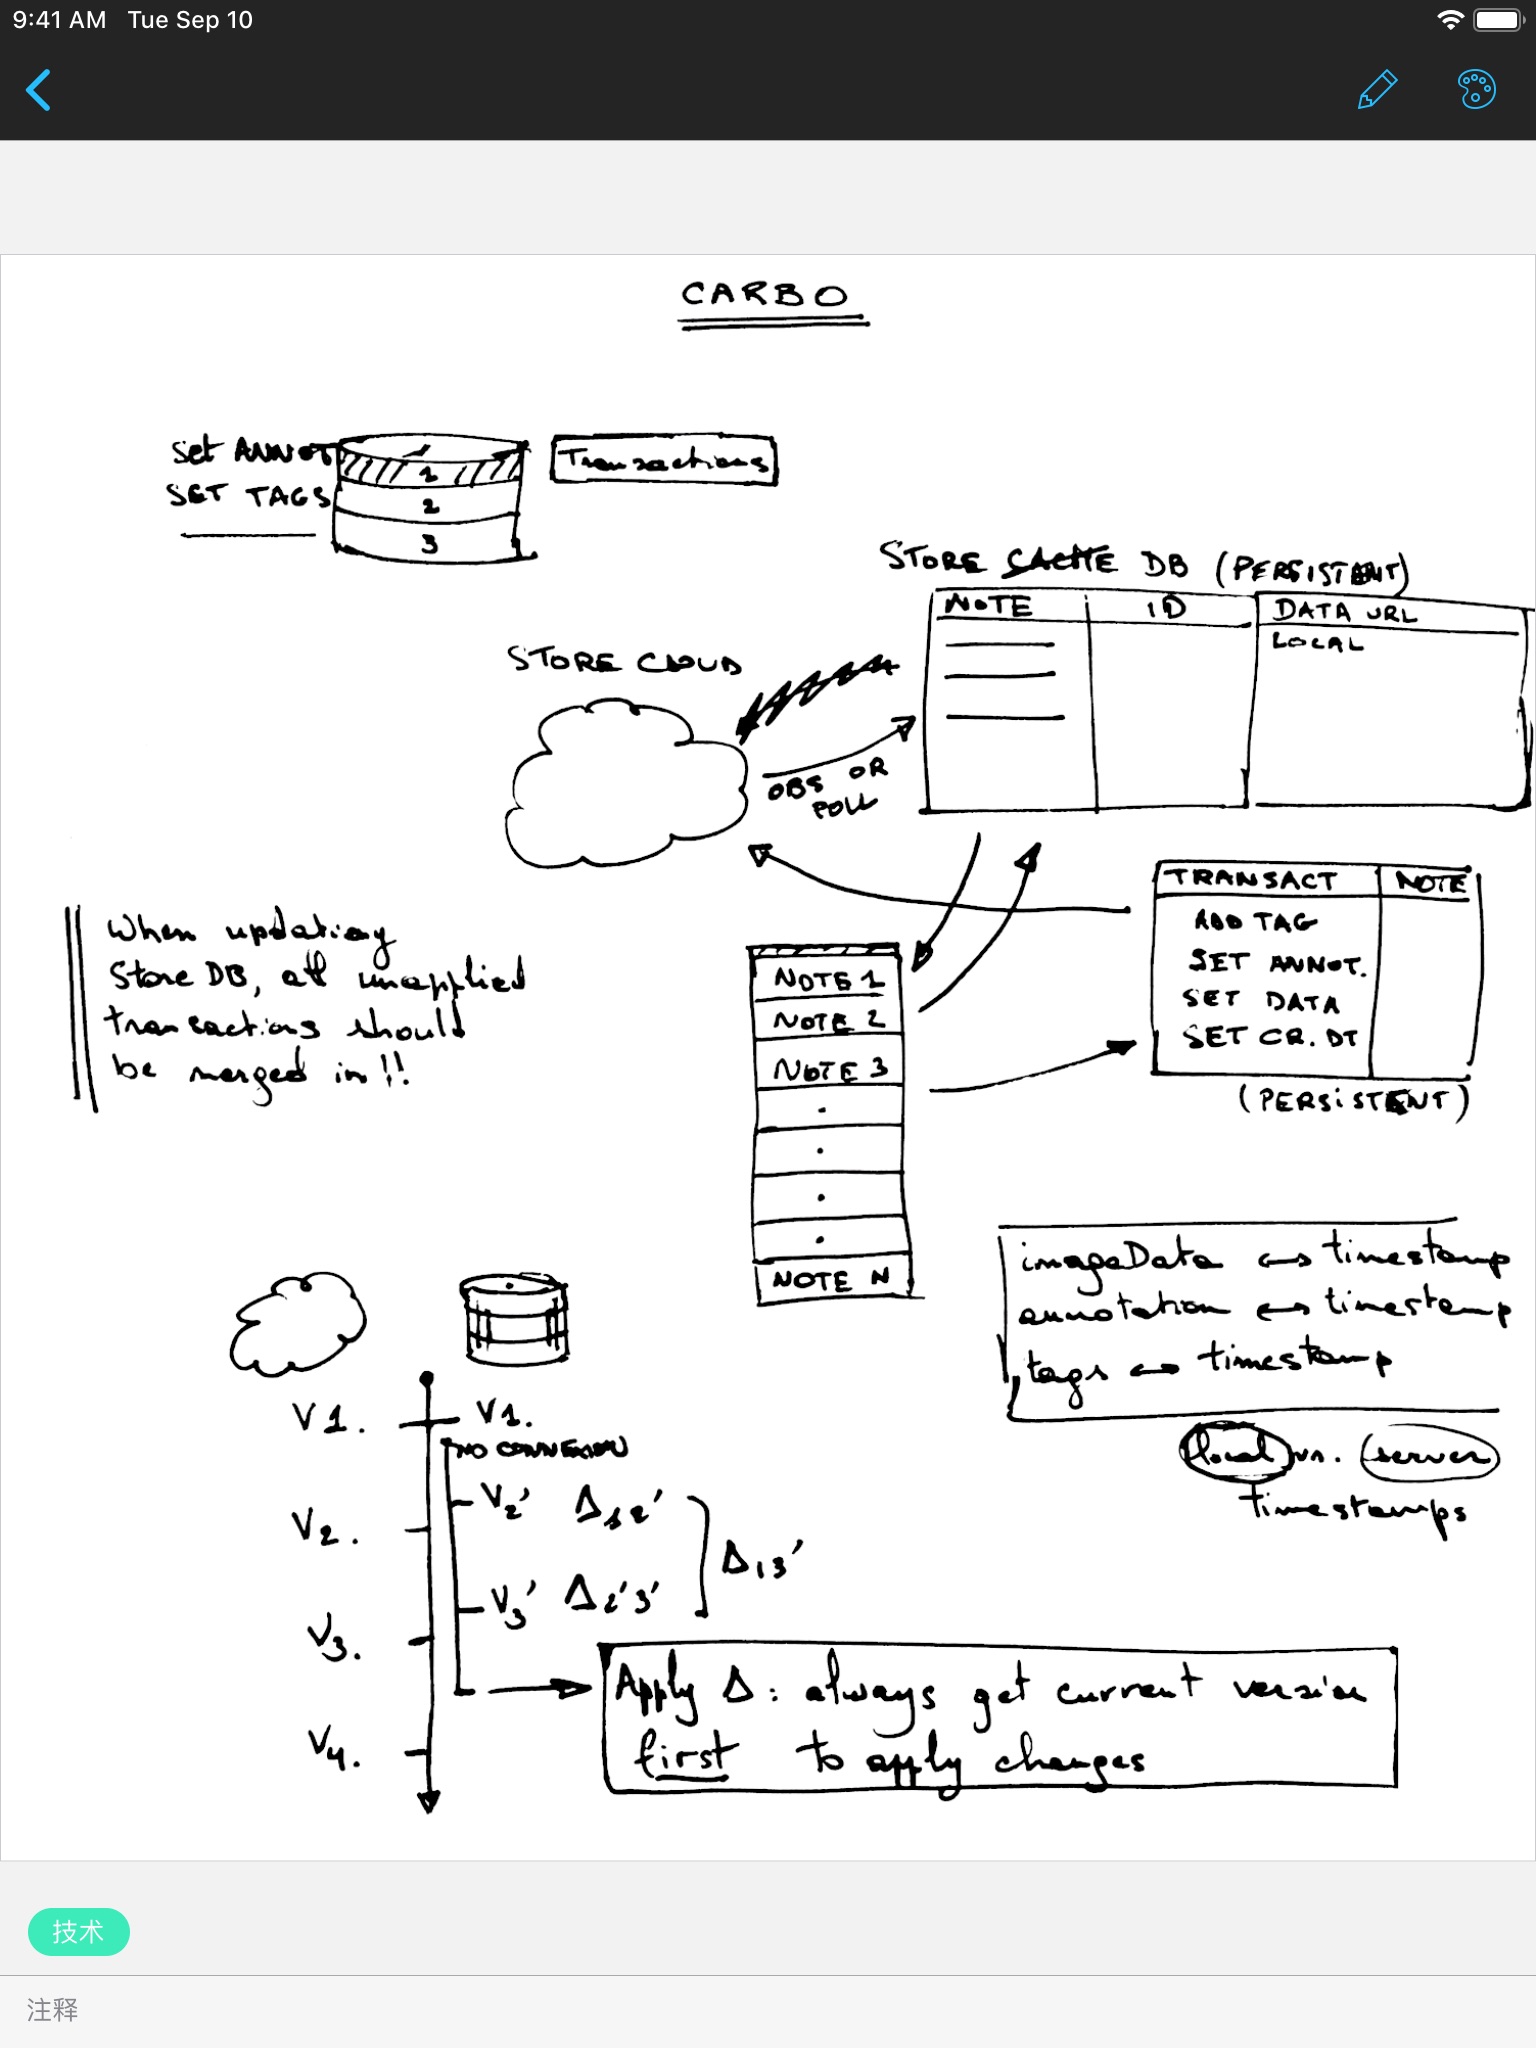 9:41 AM Tue Sep 10
CARBO
Set ANNOT
SET TAGS
1
2
3
Transactions
STORE CACHE DB (PERSISTENT)
NOTE ID DATA URL
LOCAL
STORE CLOUD
OBS OR
POLL
TRANSACT NOTE
ADD TAG
SET ANNOT.
SET DATA
SET CR. DT
(PERSISTENT)
When updating
Store DB, all unapplied
transactions should
be merged in!!
NOTE 1
NOTE 2
NOTE 3
.
.
.
.
NOTE N
imageData ↔ timestamp
annotation ↔ timestamp
tags ↔ timestamp
local vs. server
timestamps
V1. V1.
NO CONNEXION
V2' Δ12'
V2.
Δ13'
V3' Δ2'3'
V3.
Apply Δ: always get current version
first to apply changes
V4.
技术
注释